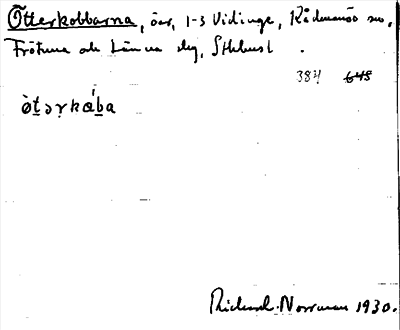 Otterkobbarna, öar, 1-3 Vidinge, Rådmansö sn,
Frötuna och Länna skg, Sthlms l .
384 645
òtərkába
Rickard Norrman 1930.